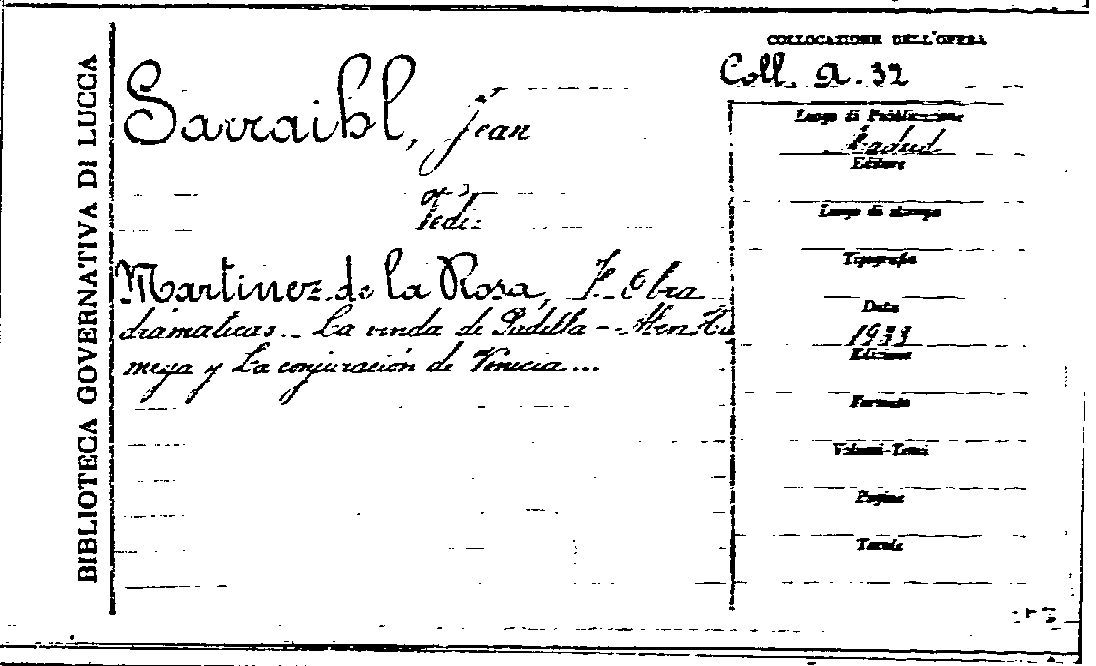 BIBLIOTECA GOVERNATIVA DI LUCCA
COLLOCAZIONE DELL'OPERA
Coll. A. 32
Sarraibl, Jean
Vedi:
Martinez de la Rosa, F. Obra
dramaticas... La viuda de Padilla - Aben Hu
meya y La conjuración de Venecia...
Luogo di Pubblicazione
Madrid
Editore
Luogo di stampa
Tipografia
Data
1933
Edizione
Formato
Volumi-Tomi
Pagine
Tavole